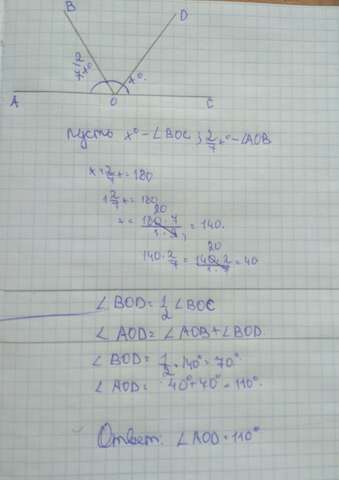 B D
2/7 x° x°
A O C
Пусть x° - ∠BOC; 2/7 x° - ∠AOB
x + 2/7 x = 180
1 2/7 x = 180
20
x = 180·7 / 1·9 = 140.
20
140·2/7 = 140·2 / 1·7 = 40
∠BOD = 1/2 ∠BOC
∠AOD = ∠AOB + ∠BOD
∠BOD = 1/2 · 140° = 70°
∠AOD = 40° + 40° = 110°.
Ответ: ∠AOD = 110°